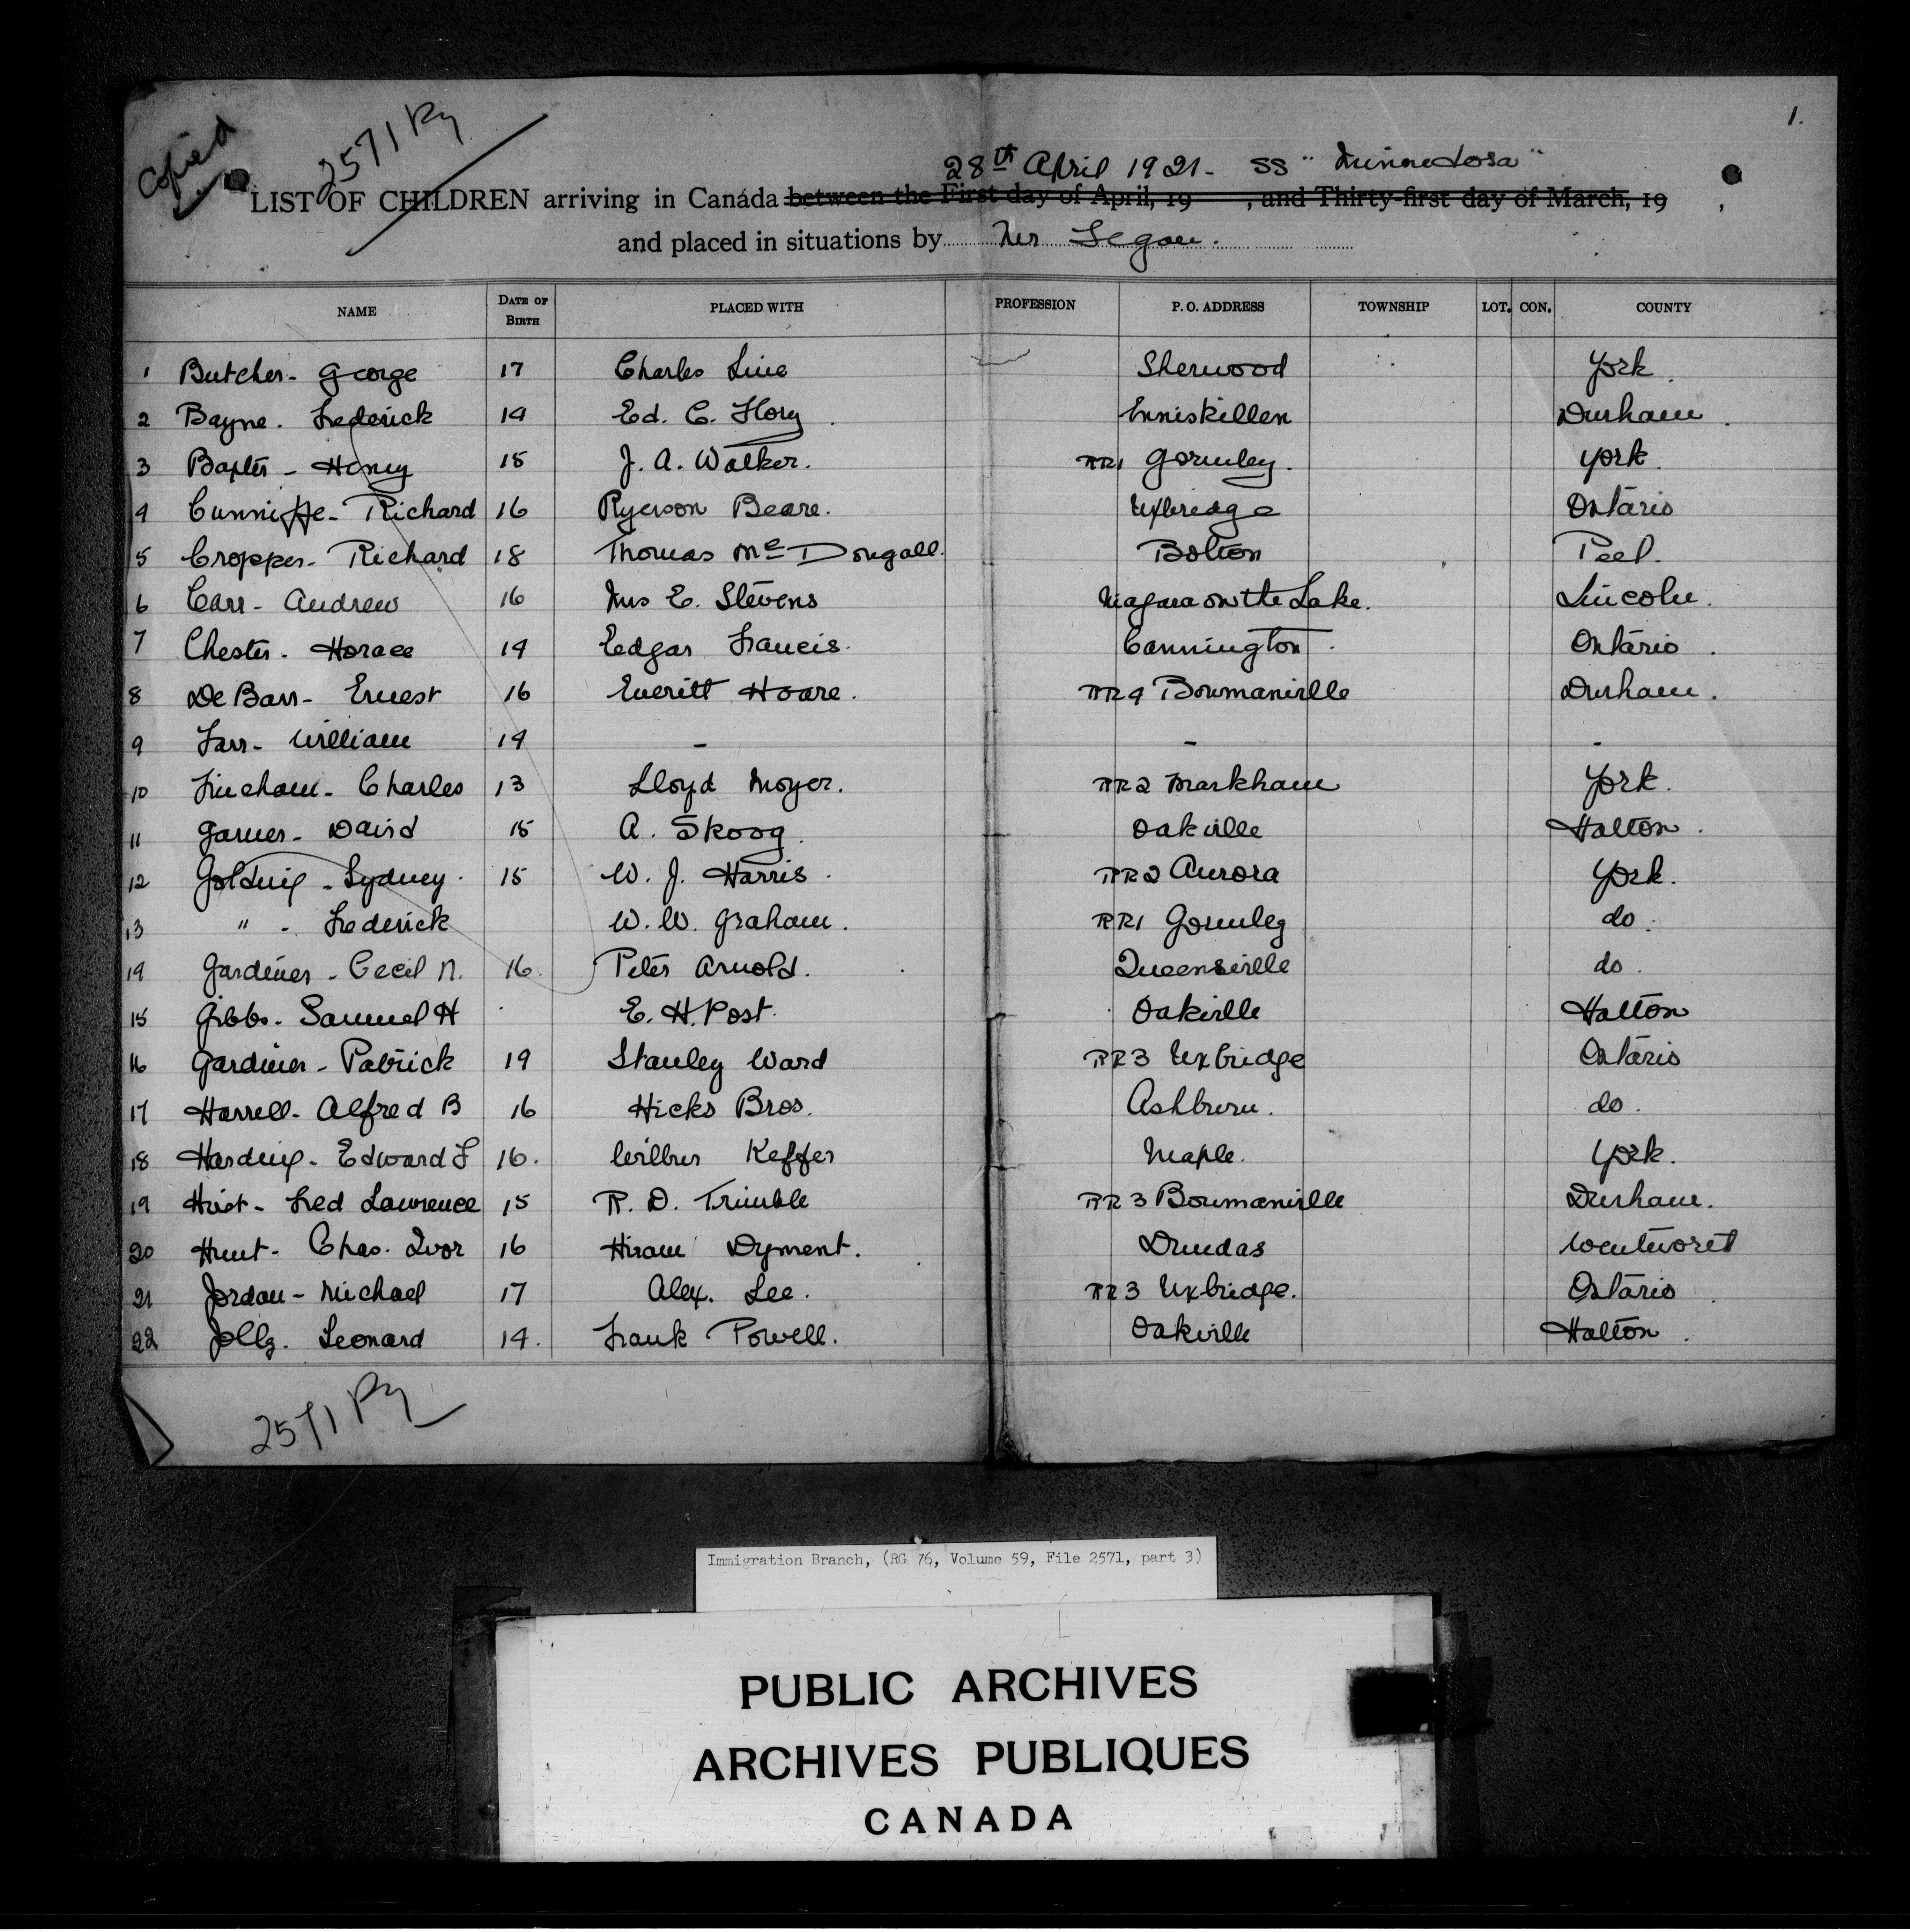 1.
Copied
2571 Ry
28th April 1921 - SS "Minnedosa"
LIST OF CHILDREN arriving in Canada between the First day of April, 19 , and Thirty-first day of March, 19 ,
and placed in situations by Mr Segou.
NAME DATE OF BIRTH PLACED WITH PROFESSION P. O. ADDRESS TOWNSHIP LOT. CON. COUNTY
1 Butcher - George 17 Charles Line Sherwood York.
2 Bayne. Frederick 14 Ed. C. Flory Enniskillen Durham.
3 Baxter - Henry 15 J. A. Walker. RR1 Gormley. York.
4 Cunniffe - Richard 16 Ryerson Beare. Uxbridge Ontario
5 Cropper - Richard 18 Thomas Mc Dougall. Bolton Peel.
6 Carr - Andrew 16 Mrs E. Stevens Niagara on the Lake. Lincoln.
7 Chester. Horace 14 Edgar Francis. Cannington. Ontario.
8 De Barr - Ernest 16 Everitt Hoare. RR4 Bowmanville Durham.
9 Farr - William 14 - - -
10 Fincham - Charles 13 Lloyd Moyer. RR2 Markham York.
11 Garner - David 15 A. Skoog. Oakville Halton.
12 Golding - Sydney. 15 W. J. Harris. RR2 Aurora York.
13 " - Frederick W. W. Graham. RR1 Gormley do.
14 Gardiner - Cecil N. 16. Peter Arnold. Queensville do.
15 Gibbs. Samuel H E. H. Post. Oakville Halton
16 Gardiner - Patrick 14 Stanley Ward RR3 Uxbridge Ontario
17 Harrell - Alfred B 16 Hicks Bros. Ashburn. do.
18 Harding - Edward F 16. Wilbur Keffer Maple. York.
19 Hirst - Fred Lawrence 15 R. D. Trimble RR3 Bowmanville Durham.
20 Hunt - Chas. Ivor 16 Hiram Dyment. Dundas Wentworth
21 Jordan - Michael 17 Alex. Lee. RR3 Uxbridge. Ontario.
22 Jolly. Leonard 14. Frank Powell. Oakville Halton.
2571 Ry
Immigration Branch, (RG 76, Volume 59, File 2571, part 3)
PUBLIC ARCHIVES
ARCHIVES PUBLIQUES
CANADA